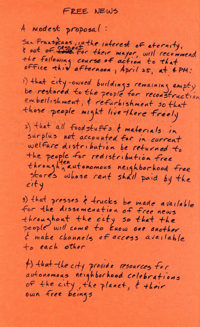 FREE NEWS
A modest proposal:
San Franciscans, in the interest of eternity,
& out of respect for their mayor, will recommend
the following course of action to that
office this afternoon, April 25, at 4 PM:
1) that city-owned buildings remaining empty
be restored to the people for reconstruction,
embellishment, & refurbishment so that
those people might live there freely
2) that all foodstuffs & materials in
surplus not accounted for in current
welfare distribution be returned to
the people for redistribution free
through ten autonomous neighborhood free
stores whose rent shall paid by the
city
3) that presses & trucks be made available
for the dissemination of free news
throughout the city so that the
people will come to know one another
& make channels of access available
to each other
4) that the city provide resources for
autonomous neighborhood celebrations
of the city, the planet, & their
own free beings